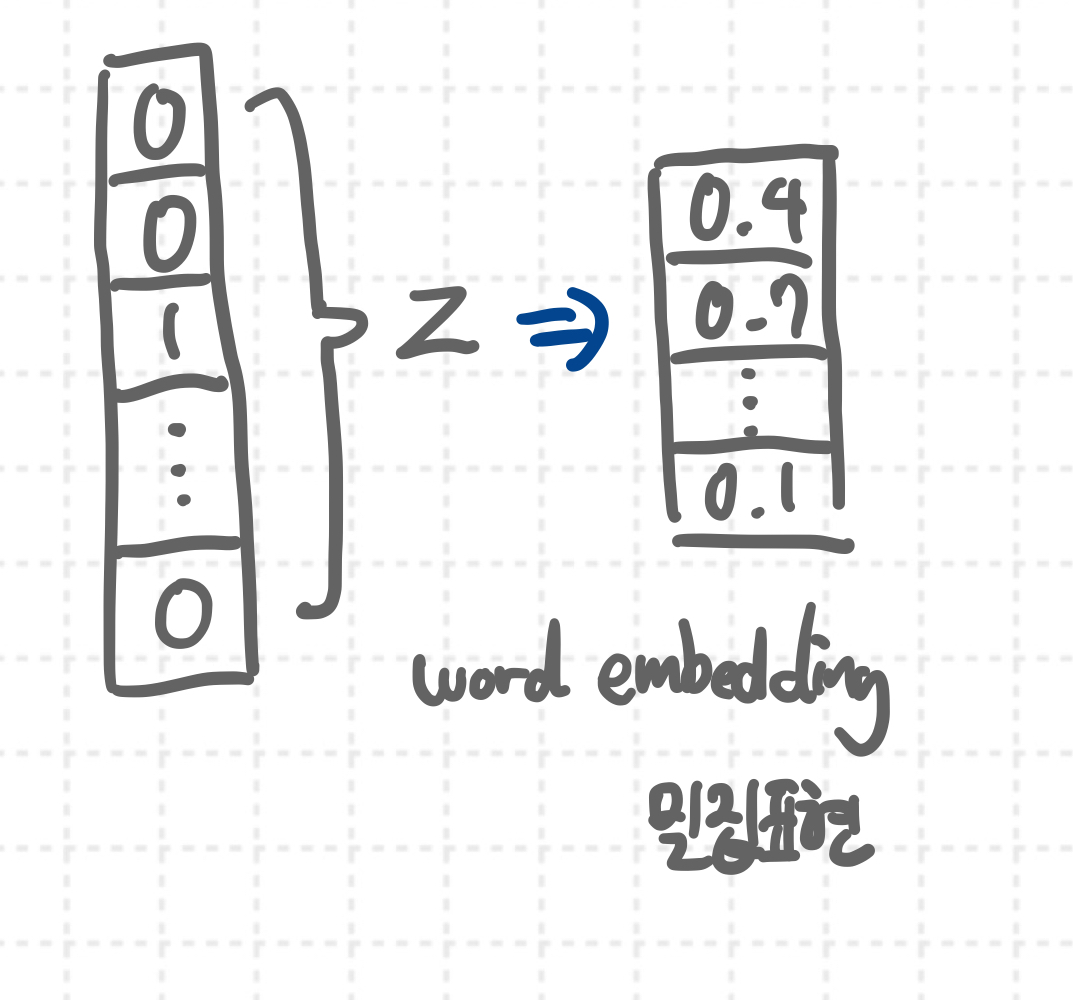 0
0
1
⋮
0
Z ⇒
0.4
0.7
⋮
0.1
word embedding
밀집표현